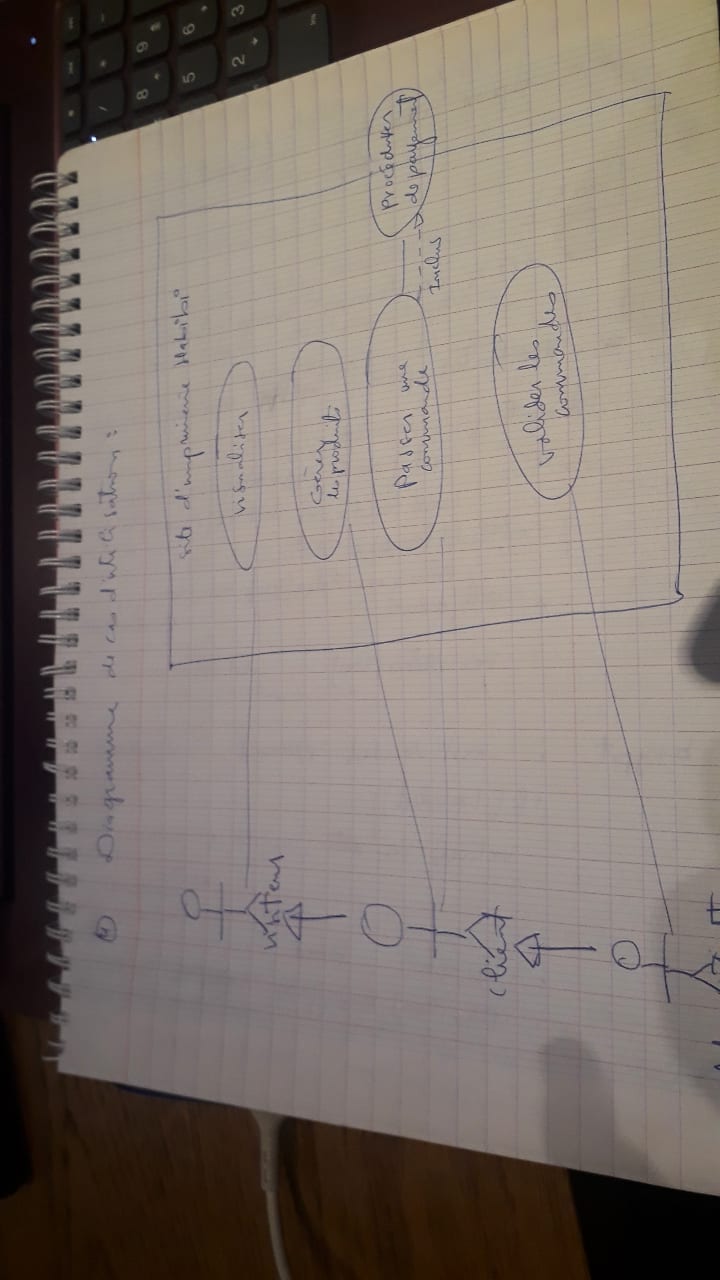 Diagramme de cas d'utilisation :
site d'imprimerie Habibi
visualiser
Gérer
les produits
Passer une
commande
Inclus
procédures
de payement
valider les
commandes
visiteur
client
* - 
/ *
8 9
5 6
2 3
Ins